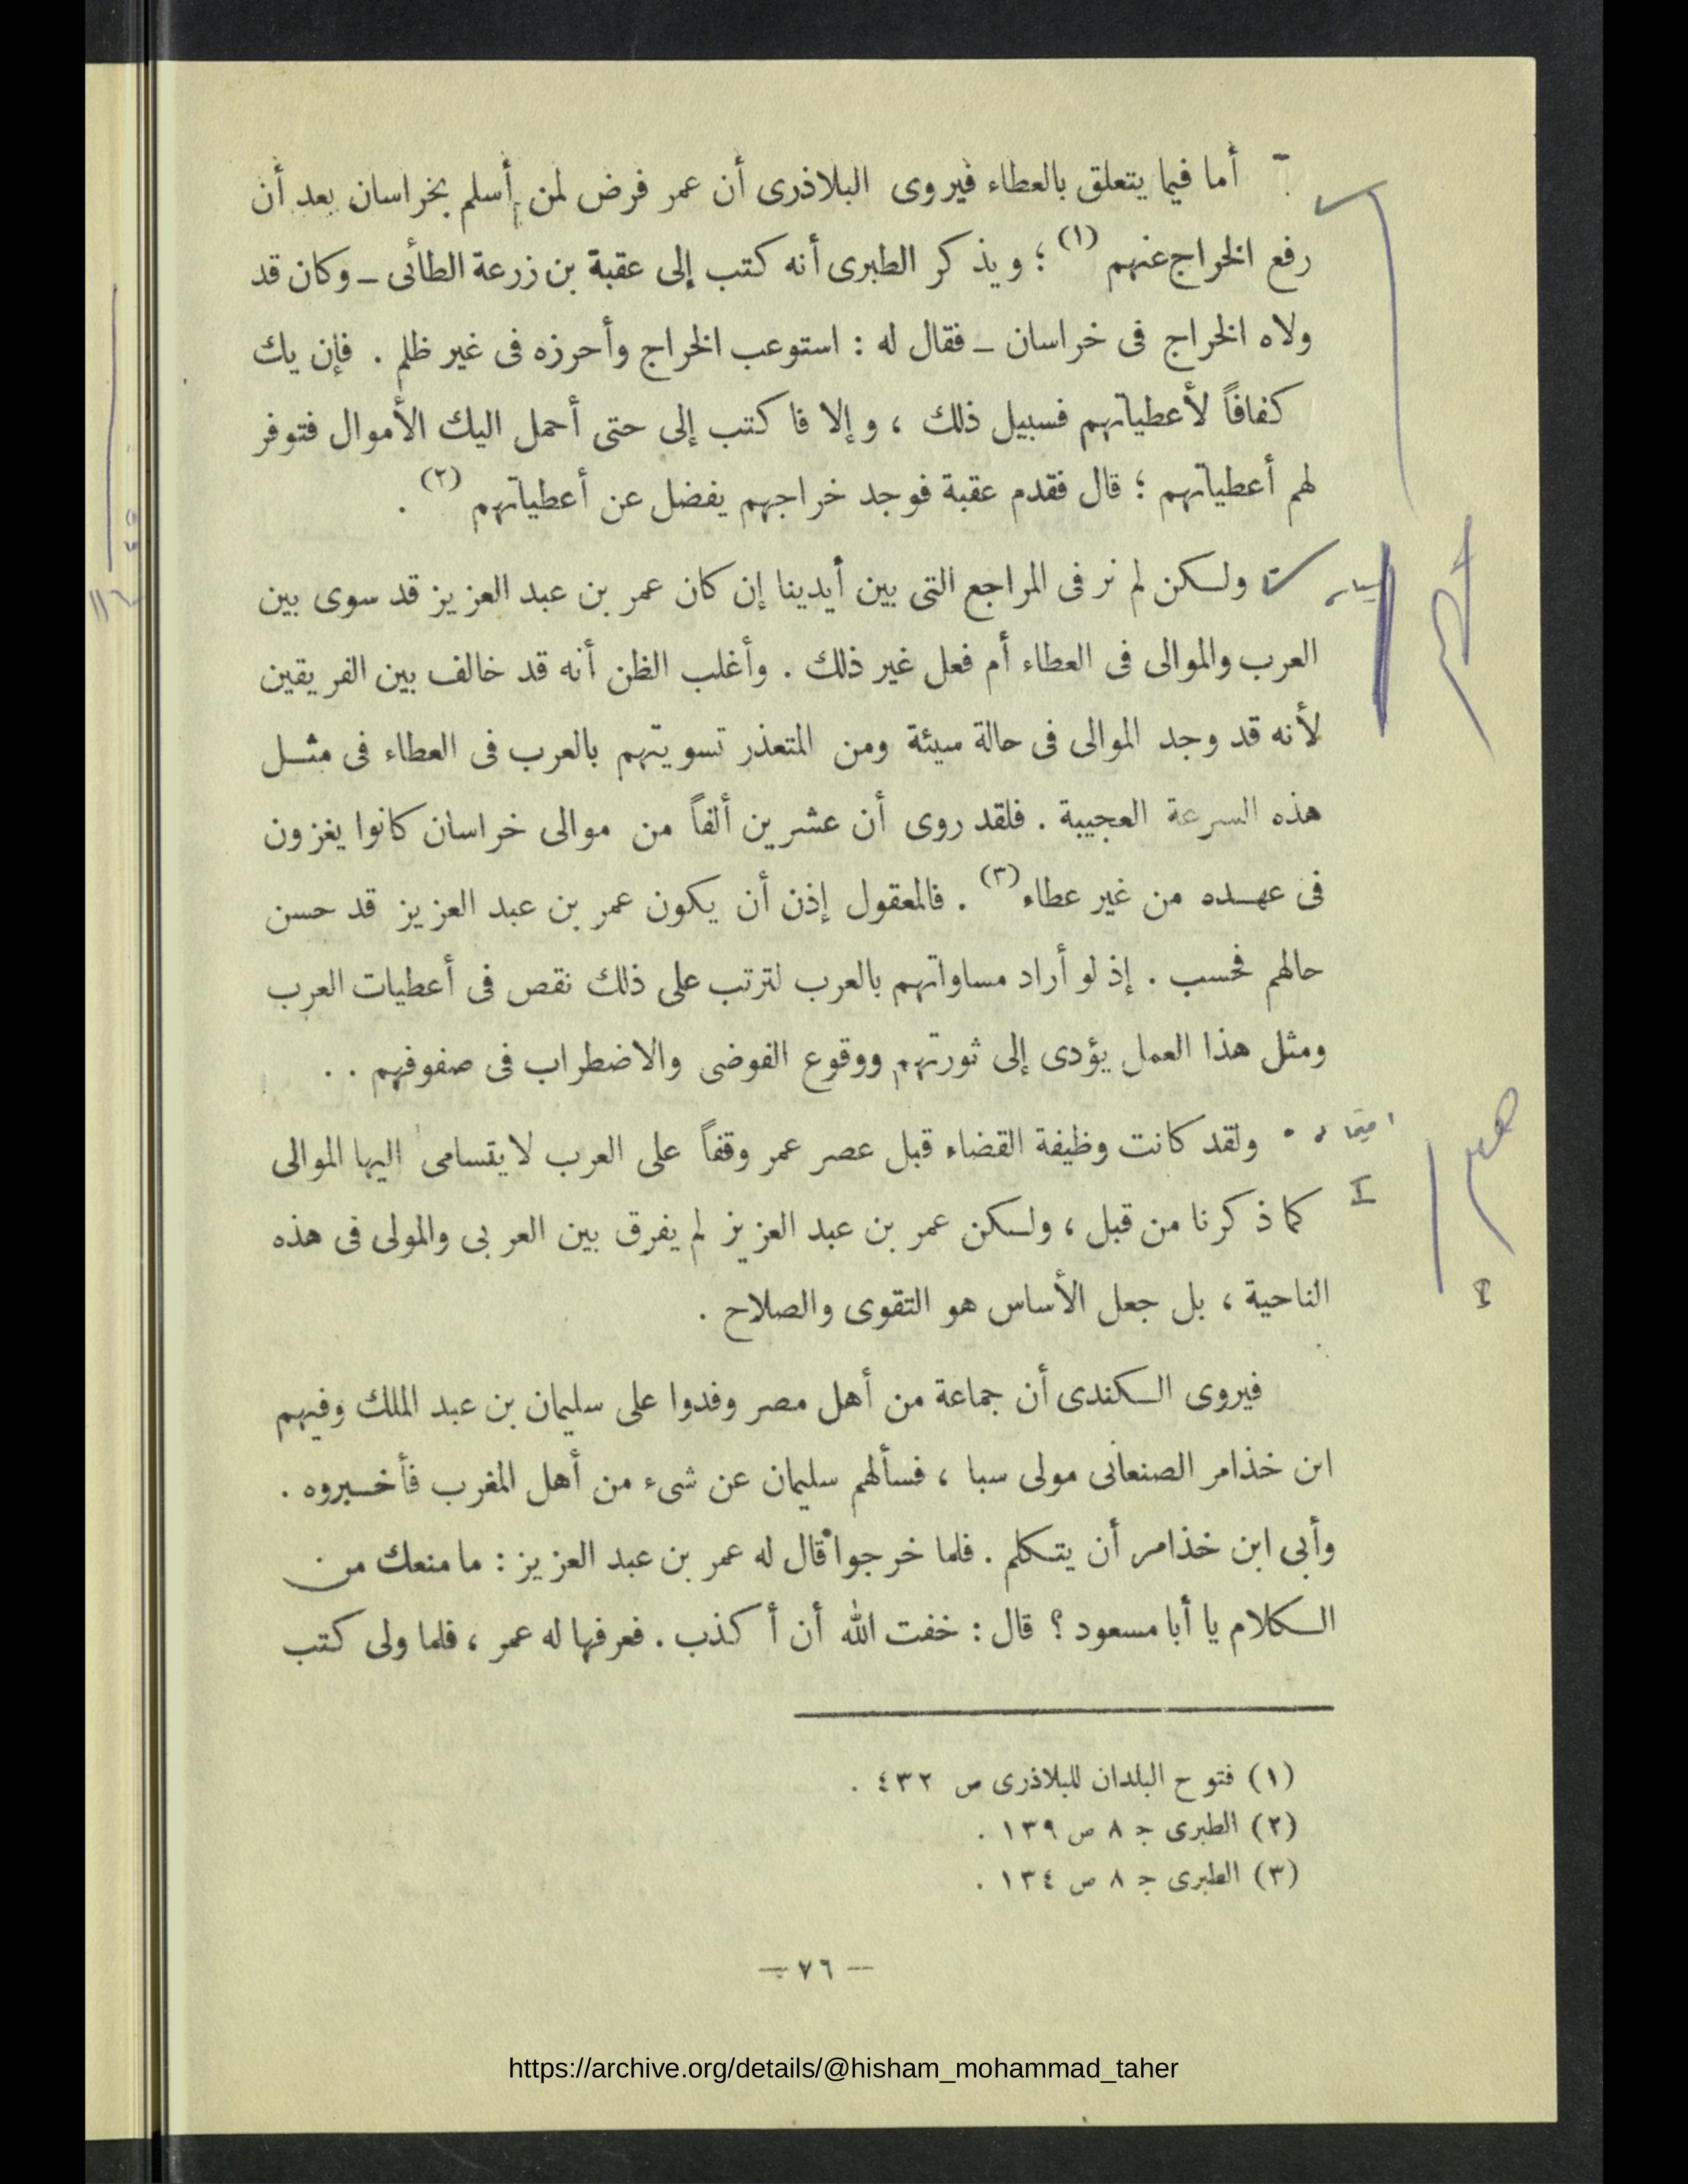 أما فيما يتعلق بالعطاء فيروى البلاذرى أن عمر فرض لمن أسلم بخراسان بعد أن
رفع الخراج عنهم (١) ؛ ويذكر الطبرى أنه كتب إلى عقبة بن زرعة الطائى ـ وكان قد
ولاه الخراج فى خراسان ـ فقال له : استوعب الخراج وأحرزه فى غير ظلم . فإن يك
كفافاً لأعطياتهم فسبيل ذلك ، وإلا فاكتب إلى حتى أحمل اليك الأموال فتوفر
لهم أعطياتهم ؛ قال فقدم عقبة فوجد خراجهم يفضل عن أعطياتهم (٢) .
ولكن لم نر فى المراجع التى بين أيدينا إن كان عمر بن عبد العزيز قد سوى بين
العرب والموالى فى العطاء أم فعل غير ذلك . وأغلب الظن أنه قد خالف بين الفريقين
لأنه قد وجد الموالى فى حالة سيئة ومن المتعذر تسويتهم بالعرب فى العطاء فى مثل
هذه السرعة العجيبة . فلقد روى أن عشرين ألفاً من موالى خراسان كانوا يغزون
فى عهده من غير عطاء (٣) . فالمعقول إذن أن يكون عمر بن عبد العزيز قد حسن
حالهم فحسب . إذ لو أراد مساواتهم بالعرب لترتب على ذلك نقص فى أعطيات العرب
ومثل هذا العمل يؤدى إلى ثورتهم ووقوع الفوضى والاضطراب فى صفوفهم . .
ولقد كانت وظيفة القضاء قبل عصر عمر وقفاً على العرب لا يتسامى اليها الموالى
كما ذكرنا من قبل ، ولكن عمر بن عبد العزيز لم يفرق بين العربى والمولى فى هذه
الناحية ، بل جعل الأساس هو التقوى والصلاح .
فيروى الكندى أن جماعة من أهل مصر وفدوا على سليمان بن عبد الملك وفيهم
ابن خذامر الصنعانى مولى سبا ، فسألهم سليمان عن شىء من أهل المغرب فأخبروه .
وأبى ابن خذامر أن يتكلم . فلما خرجوا قال له عمر بن عبد العزيز : ما منعك من
الكلام يا أبا مسعود ؟ قال : خفت الله أن أكذب . فعرفها له عمر ، فلما ولى كتب
(١) فتوح البلدان للبلاذرى ص ٤٣٢ .
(٢) الطبرى ج ٨ ص ١٣٩ .
(٣) الطبرى ج ٨ ص ١٣٤ .
— ٧٦ —
https://archive.org/details/@hisham_mohammad_taher